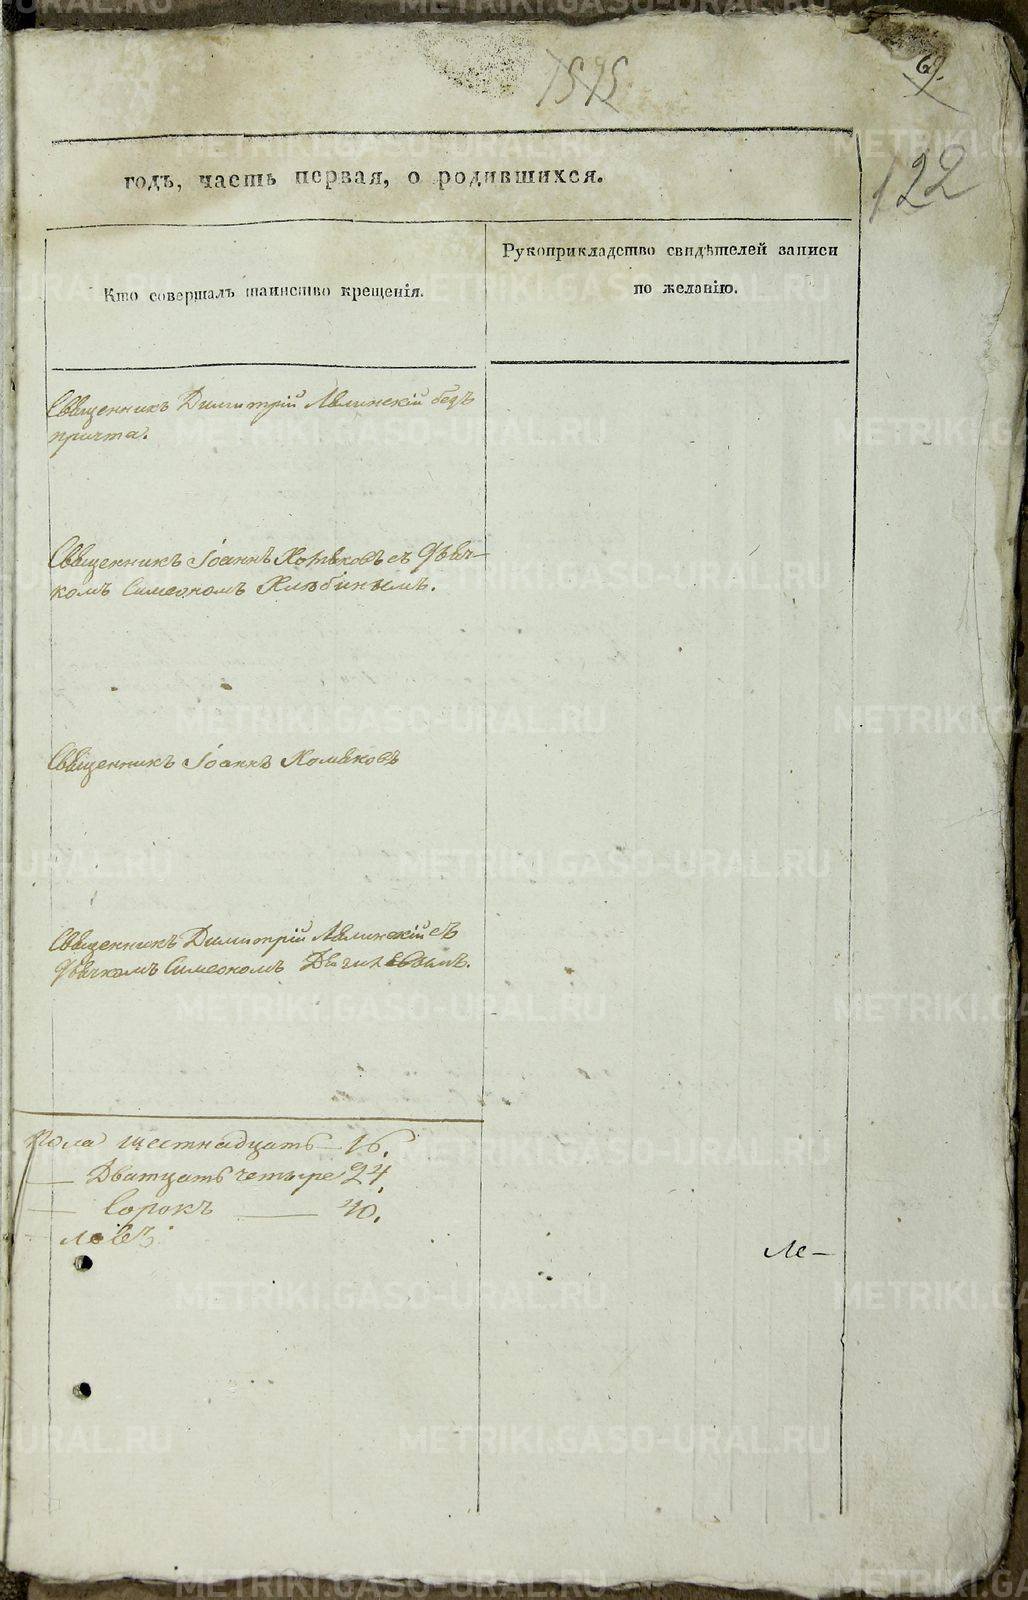 69.
122
годъ, часть первая, о родившихся.
Кто совершалъ таинство крещенія.
Рукоприкладство свидѣтелей записи
по желанію.
Священникъ Димитрій Лялинскій безъ
причта.
Священникъ Іоаннъ Хомяковъ съ дьяч-
комъ Симеономъ Хлѣбинымъ.
Священникъ Іоаннъ Хомяковъ
Священникъ Димитрій Лялинскій съ
дьячкомъ Симеономъ
пола шестнадцать 16.
— Дватцать четыре 24
— Сорокъ — 40.
Ле-
METRIKI.GASO-URAL.RU